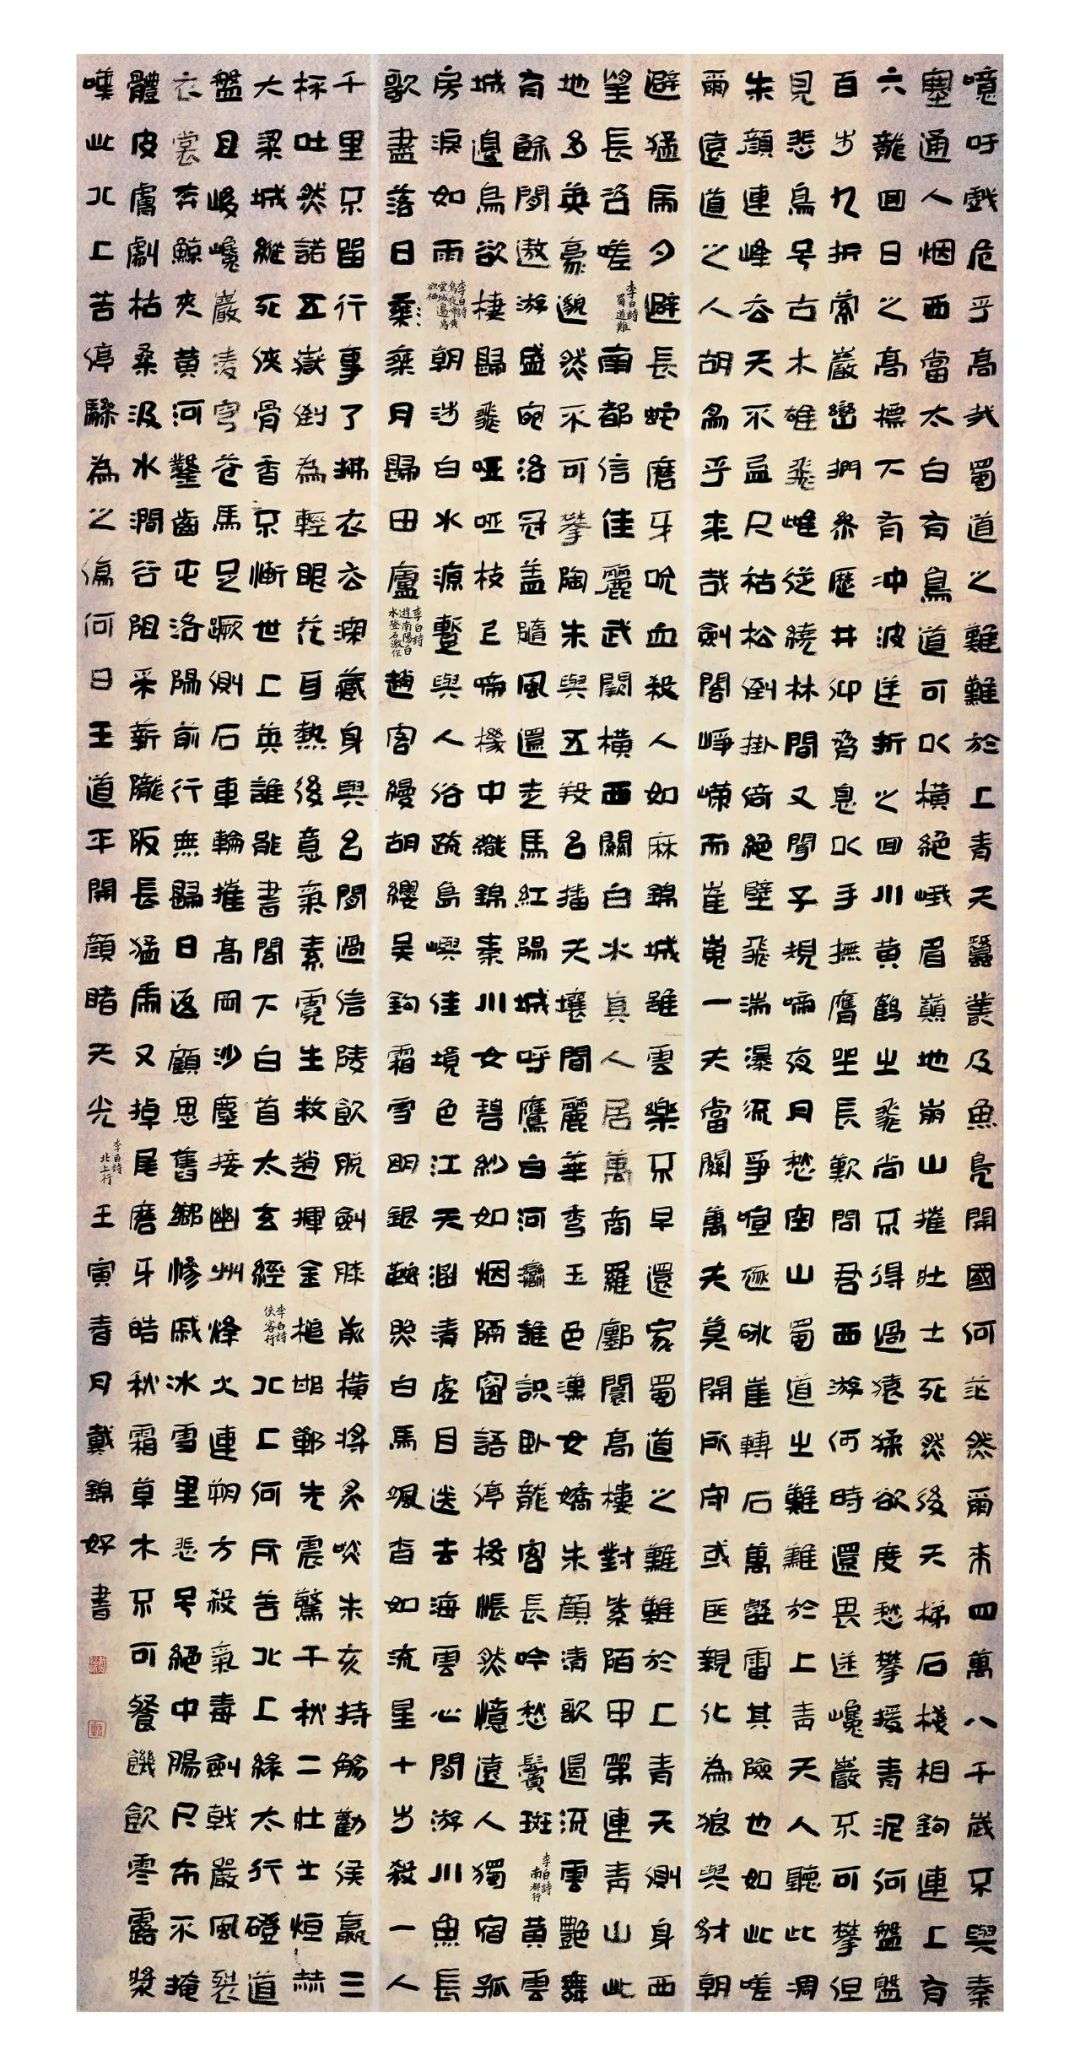 噫吁戲危乎高哉蜀道之難難於上青天蠶叢及魚鳧開國何茫然爾來四萬八千歲不與秦
塞通人烟西當太白有鳥道可以橫絕峨眉巔地崩山摧壯士死然後天梯石棧相鉤連上有
六龍回日之高標下有冲波逆折之回川黃鶴之飛尚不得過猿猱欲度愁攀援青泥何盤盤
百步九折縈巖巒捫參歷井仰脅息以手撫膺坐長歎問君西游何時還畏途巉巖不可攀但
見悲鳥号古木雄飛雌從繞林間又聞子規啼夜月愁空山蜀道之難難於上青天人聽此凋
朱顏連峰去天不盈尺枯松倒掛倚絕壁飛湍瀑流爭喧豗砯崖轉石萬壑雷其險也如此嗟
爾遠道之人胡為乎來哉劍閣崢嶸而崔嵬一夫當關萬夫莫開所守或匪親化為狼與豺朝
避猛虎夕避長蛇磨牙吮血殺人如麻錦城雖雲樂不早還家蜀道之難難於上青天側身西
望長咨嗟李白詩蜀道難南都信佳麗武闕橫西關白水真人居萬商羅鄽闤高樓對紫陌甲第連青山此
地多英豪邈然不可攀陶朱與五羖名播天壤間麗華秀玉色漢女嬌朱顏清歌遏流雲艷舞
有餘閒遨游盛宛洛冠蓋隨風還走馬紅陽城呼鷹白河灣誰識臥龍客長吟愁鬢斑李白詩南都行黃雲
城邊烏欲棲歸飛啞啞枝上啼機中織錦秦川女碧紗如烟隔窗語停梭悵然憶遠人獨宿孤
房淚如雨李白詩烏夜啼黃雲城邊烏欲棲朝涉白水源暫與人俗疏島嶼佳境色江天涵清虛目送去海雲心閒游川魚長
歌盡落日乘乘月歸田廬李白詩遊南陽白水登石激作趙客縵胡纓吳鉤霜雪明銀鞍照白馬颯沓如流星十步殺一人
千里不留行事了拂衣去深藏身與名閒過信陵飲脫劍膝前橫將炙啖朱亥持觴勸侯嬴三
杯吐然諾五嶽倒為輕眼花耳熱後意氣素霓生救趙揮金槌邯鄲先震驚千秋二壯士烜赫
大梁城縱死俠骨香不慚世上英誰能書閣下白首太玄經李白詩俠客行北上何所苦北上緣太行磴道
盤且峻巉巖凌穹蒼馬足蹶側石車輪摧高岡沙塵接幽州烽火連朔方殺氣毒劍戟嚴風裂
衣裳奔鯨夾黃河鑿齒屯洛陽前行無歸日返顧思舊鄉慘戚冰雪里悲号絕中腸尺布不掩
體皮膚劇枯桑汲水澗谷阻采薪隴阪長猛虎又掉尾磨牙皓秋霜草木不可餐饑飲零露漿
嘆此北上苦停驂為之傷何日王道平開顏睹天光李白詩北上行壬寅春月戴錦好書